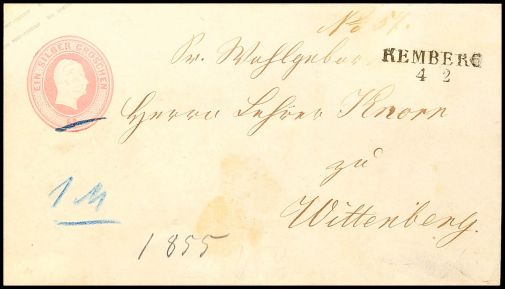 No 57.
EIN SILBER GROSCHEN
Sr. Wohlgebor.
KEMBERG
4 2
Herrn Lehrer Knorr
zu
1 M
Wittenberg.
1855